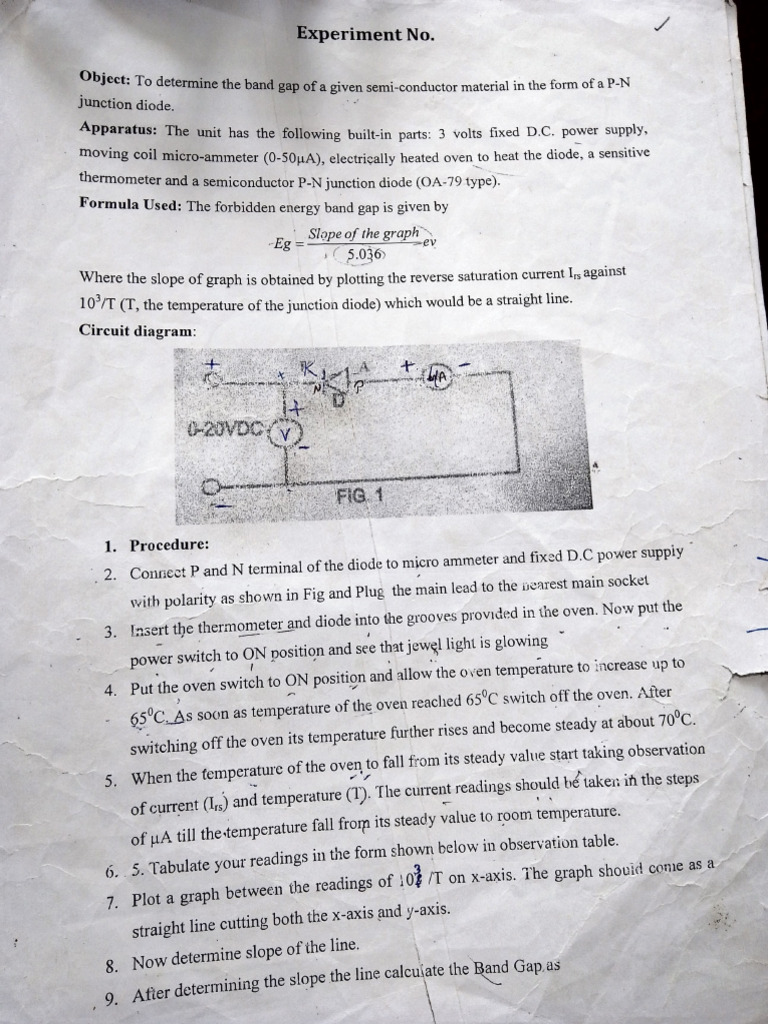 Experiment No.
Object: To determine the band gap of a given semi-conductor material in the form of a P-N
junction diode.
Apparatus: The unit has the following built-in parts: 3 volts fixed D.C. power supply,
moving coil micro-ammeter (0-50μA), electrically heated oven to heat the diode, a sensitive
thermometer and a semiconductor P-N junction diode (OA-79 type).
Formula Used: The forbidden energy band gap is given by
Eg = Slope of the graph / 5.036 ev
Where the slope of graph is obtained by plotting the reverse saturation current Irs against
10³/T (T, the temperature of the junction diode) which would be a straight line.
Circuit diagram:
+ + K A + -
N P μA
D
+
0-20VDC V
-
-
FIG. 1
1. Procedure:
2. Connect P and N terminal of the diode to micro ammeter and fixed D.C power supply
with polarity as shown in Fig and Plug the main lead to the nearest main socket
3. Insert the thermometer and diode into the grooves provided in the oven. Now put the
power switch to ON position and see that jewel light is glowing
4. Put the oven switch to ON position and allow the oven temperature to increase up to
65⁰C. As soon as temperature of the oven reached 65⁰C switch off the oven. After
switching off the oven its temperature further rises and become steady at about 70⁰C.
5. When the temperature of the oven to fall from its steady value start taking observation
of current (Irs) and temperature (T). The current readings should be taken in the steps
of μA till the temperature fall from its steady value to room temperature.
6. 5. Tabulate your readings in the form shown below in observation table.
7. Plot a graph between the readings of 10³ /T on x-axis. The graph should come as a
straight line cutting both the x-axis and y-axis.
8. Now determine slope of the line.
9. After determining the slope the line calculate the Band Gap as